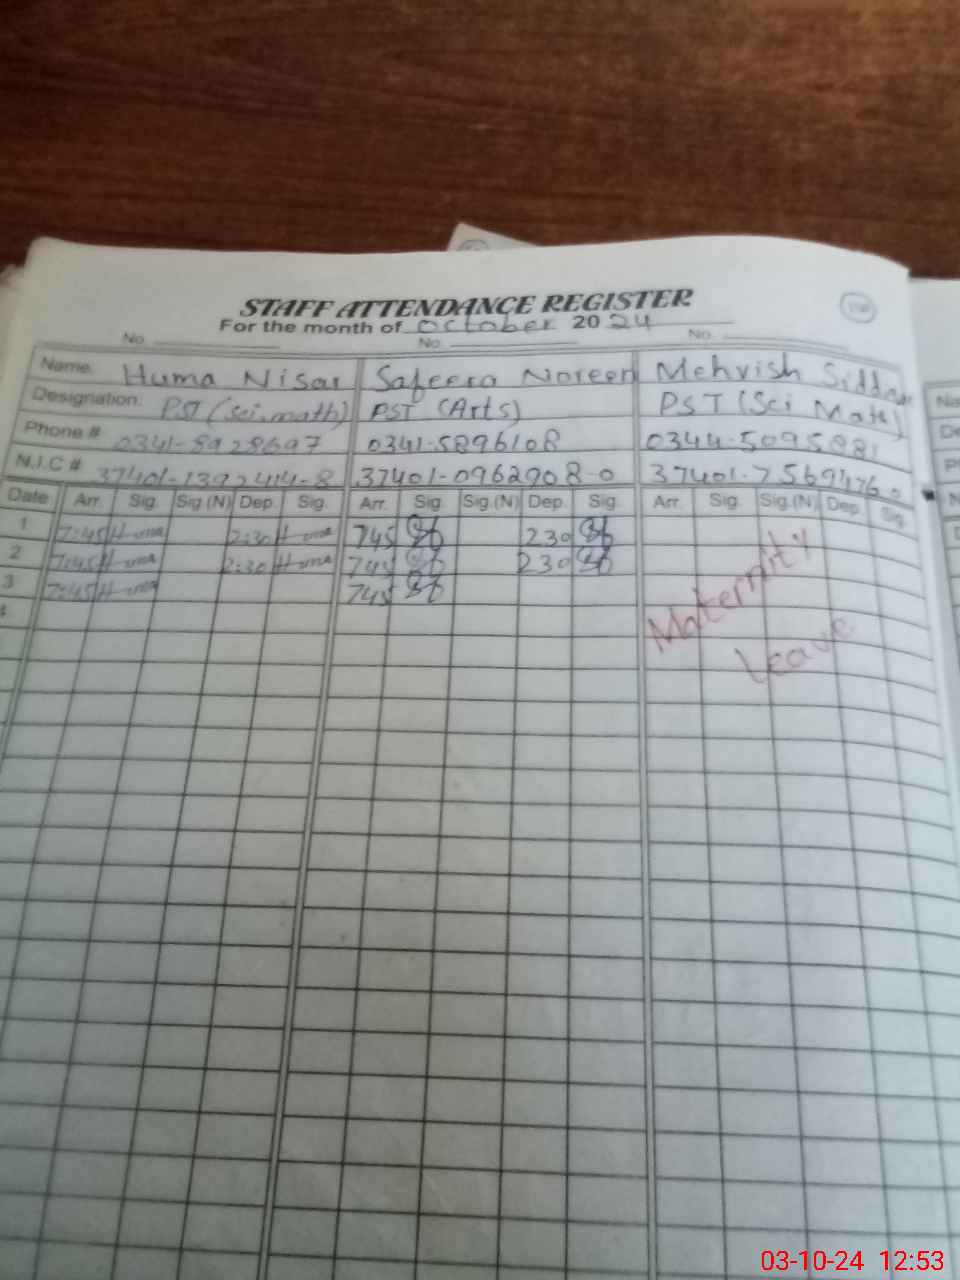 STAFF ATTENDANCE REGISTER
For the month of October 2024
No. No. No.
Name: Huma Nisar Safeera Noreen Mehvish
Designation: PST (sci.math) PST (Arts) PST (Sci Math)
Phone # 0341-8928697 0341-5896108 0344-5095881
N.I.C # 37401-1392414-8 37401-0962908-0
Date Arr. Sig. Sig.(N) Dep. Sig. Arr. Sig. Sig.(N) Dep. Sig. Arr. Sig. Sig.(N) Dep. Sig.
1 7:45 Huma 2:30 Huma 745 230
2 7:45 Huma 2:30 Huma 745 230
3 7:45 Huma 745
4
Maternity
Leave
03-10-24 12:53